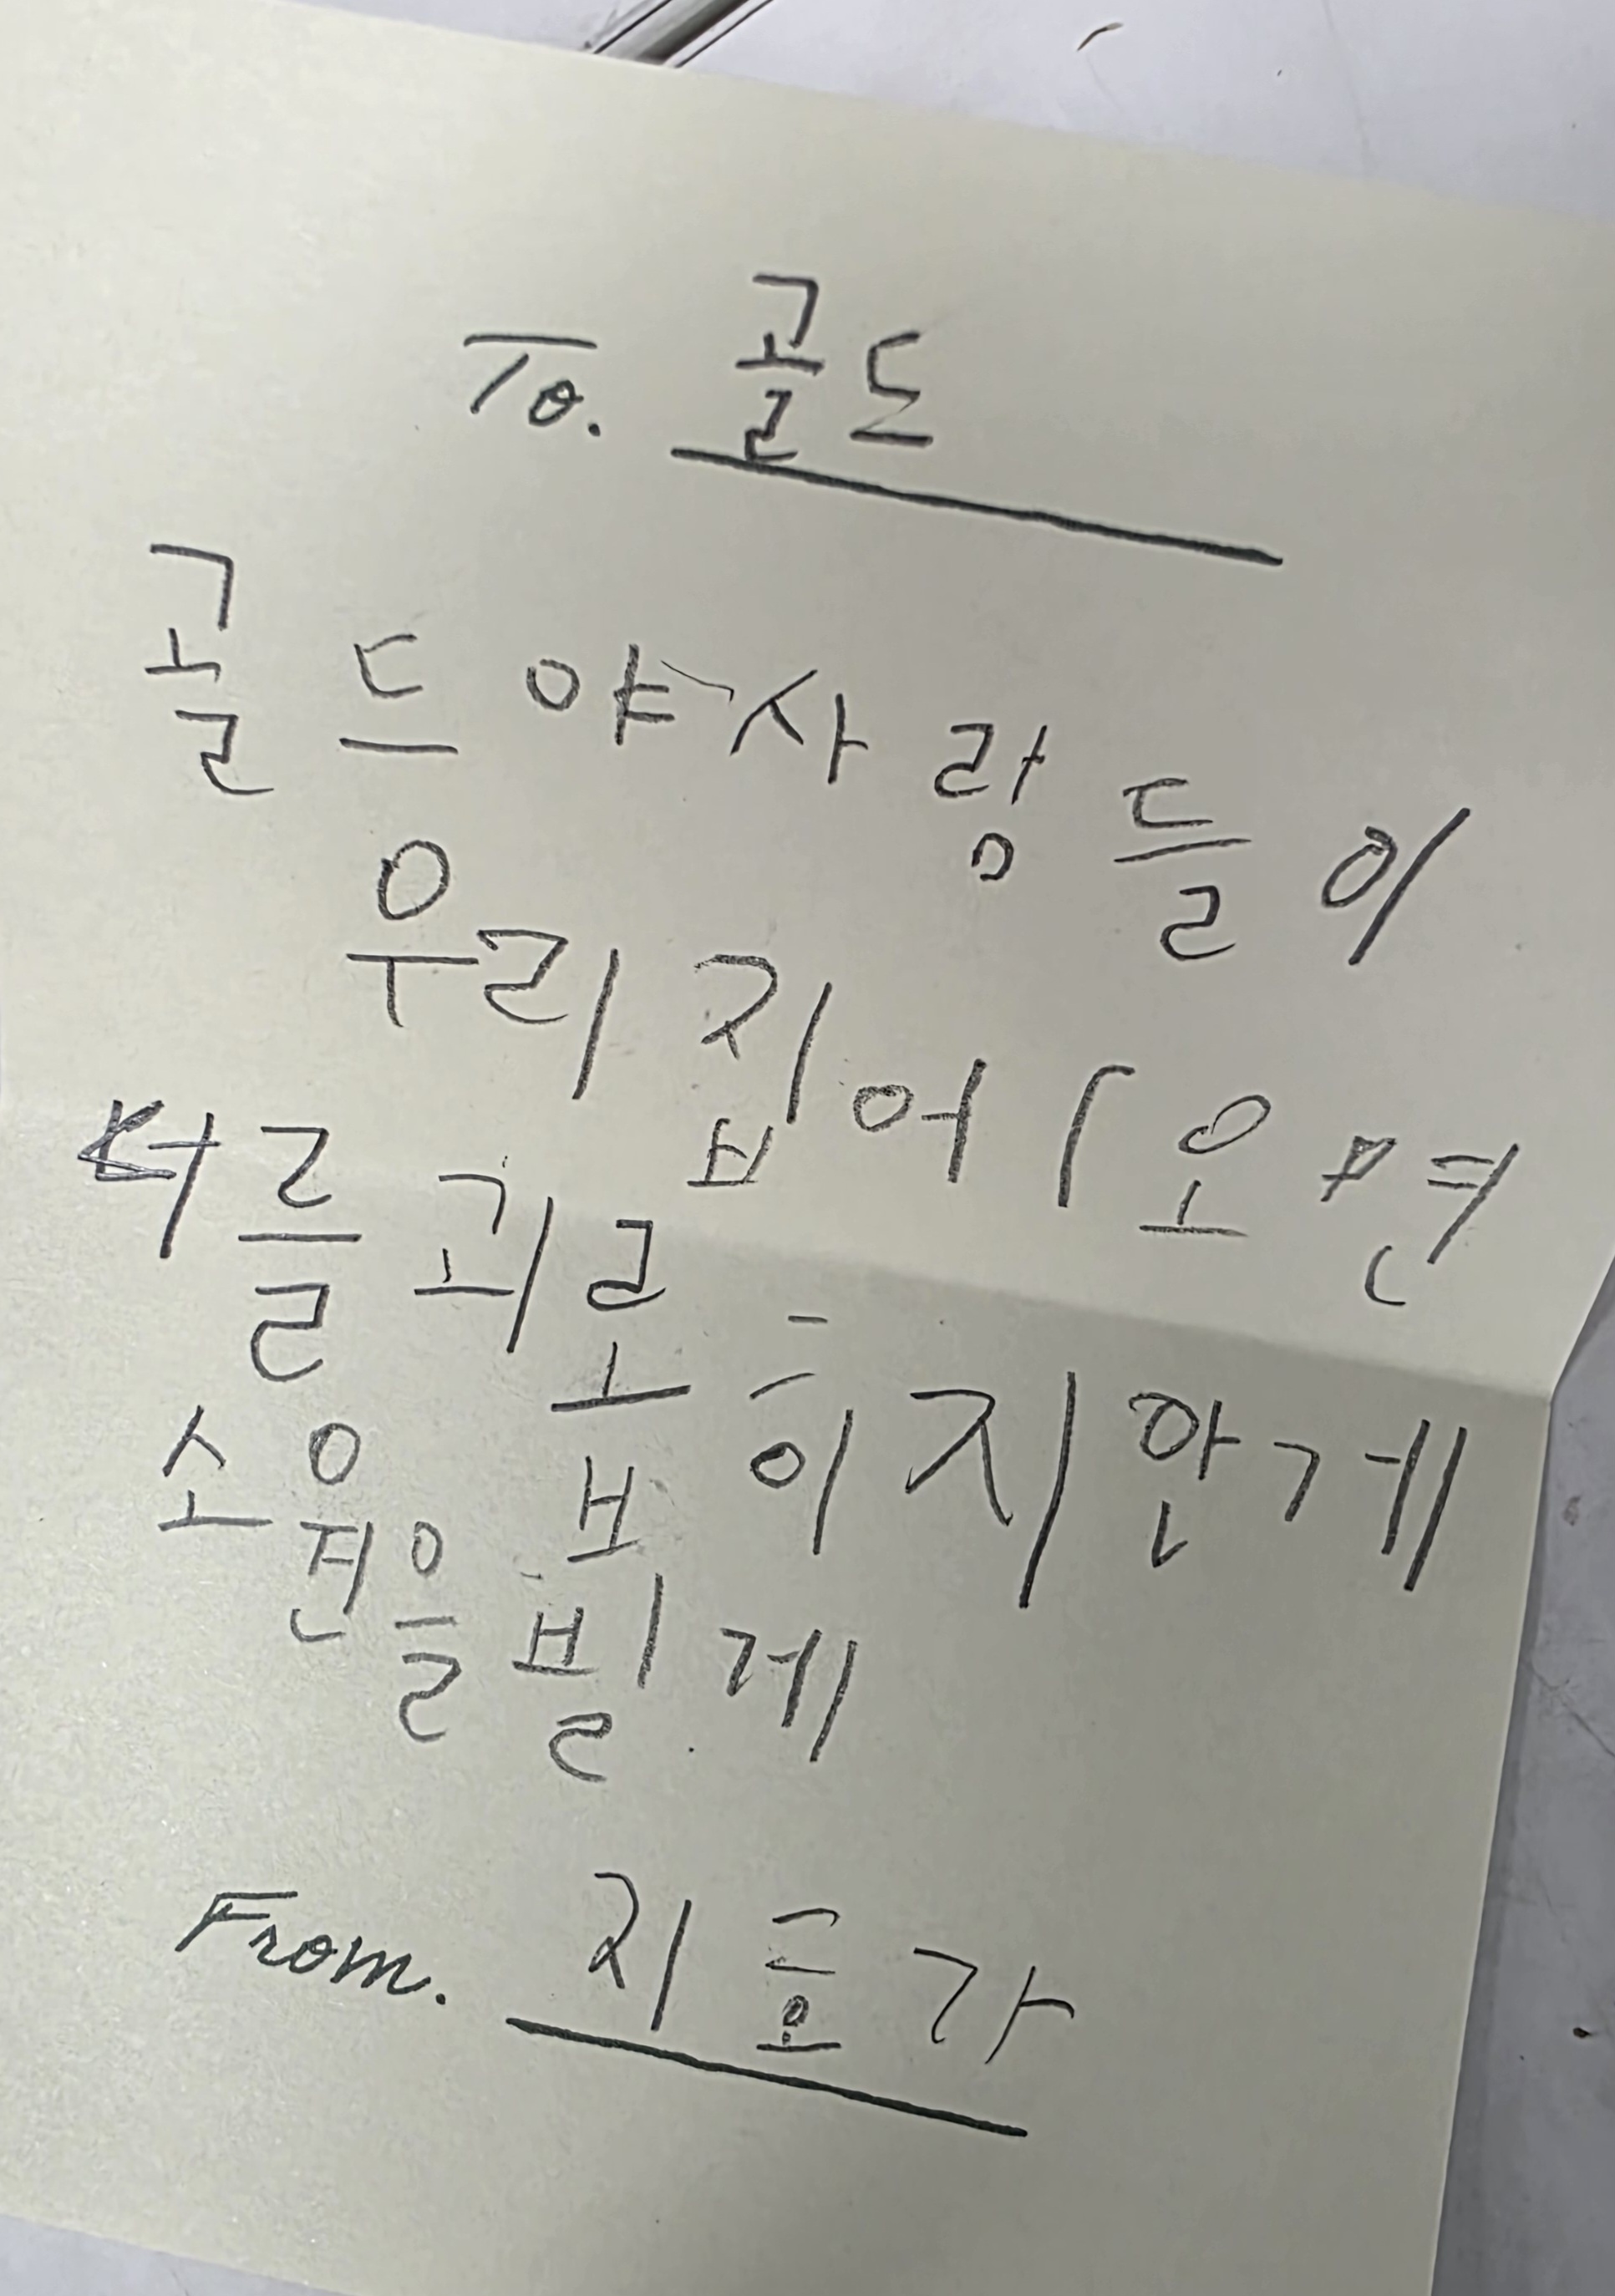 To. 골드
골드야 사람들이
우리 집에 오면
너를 괴롭히지 안게
소원을 빌게
From. 지호가